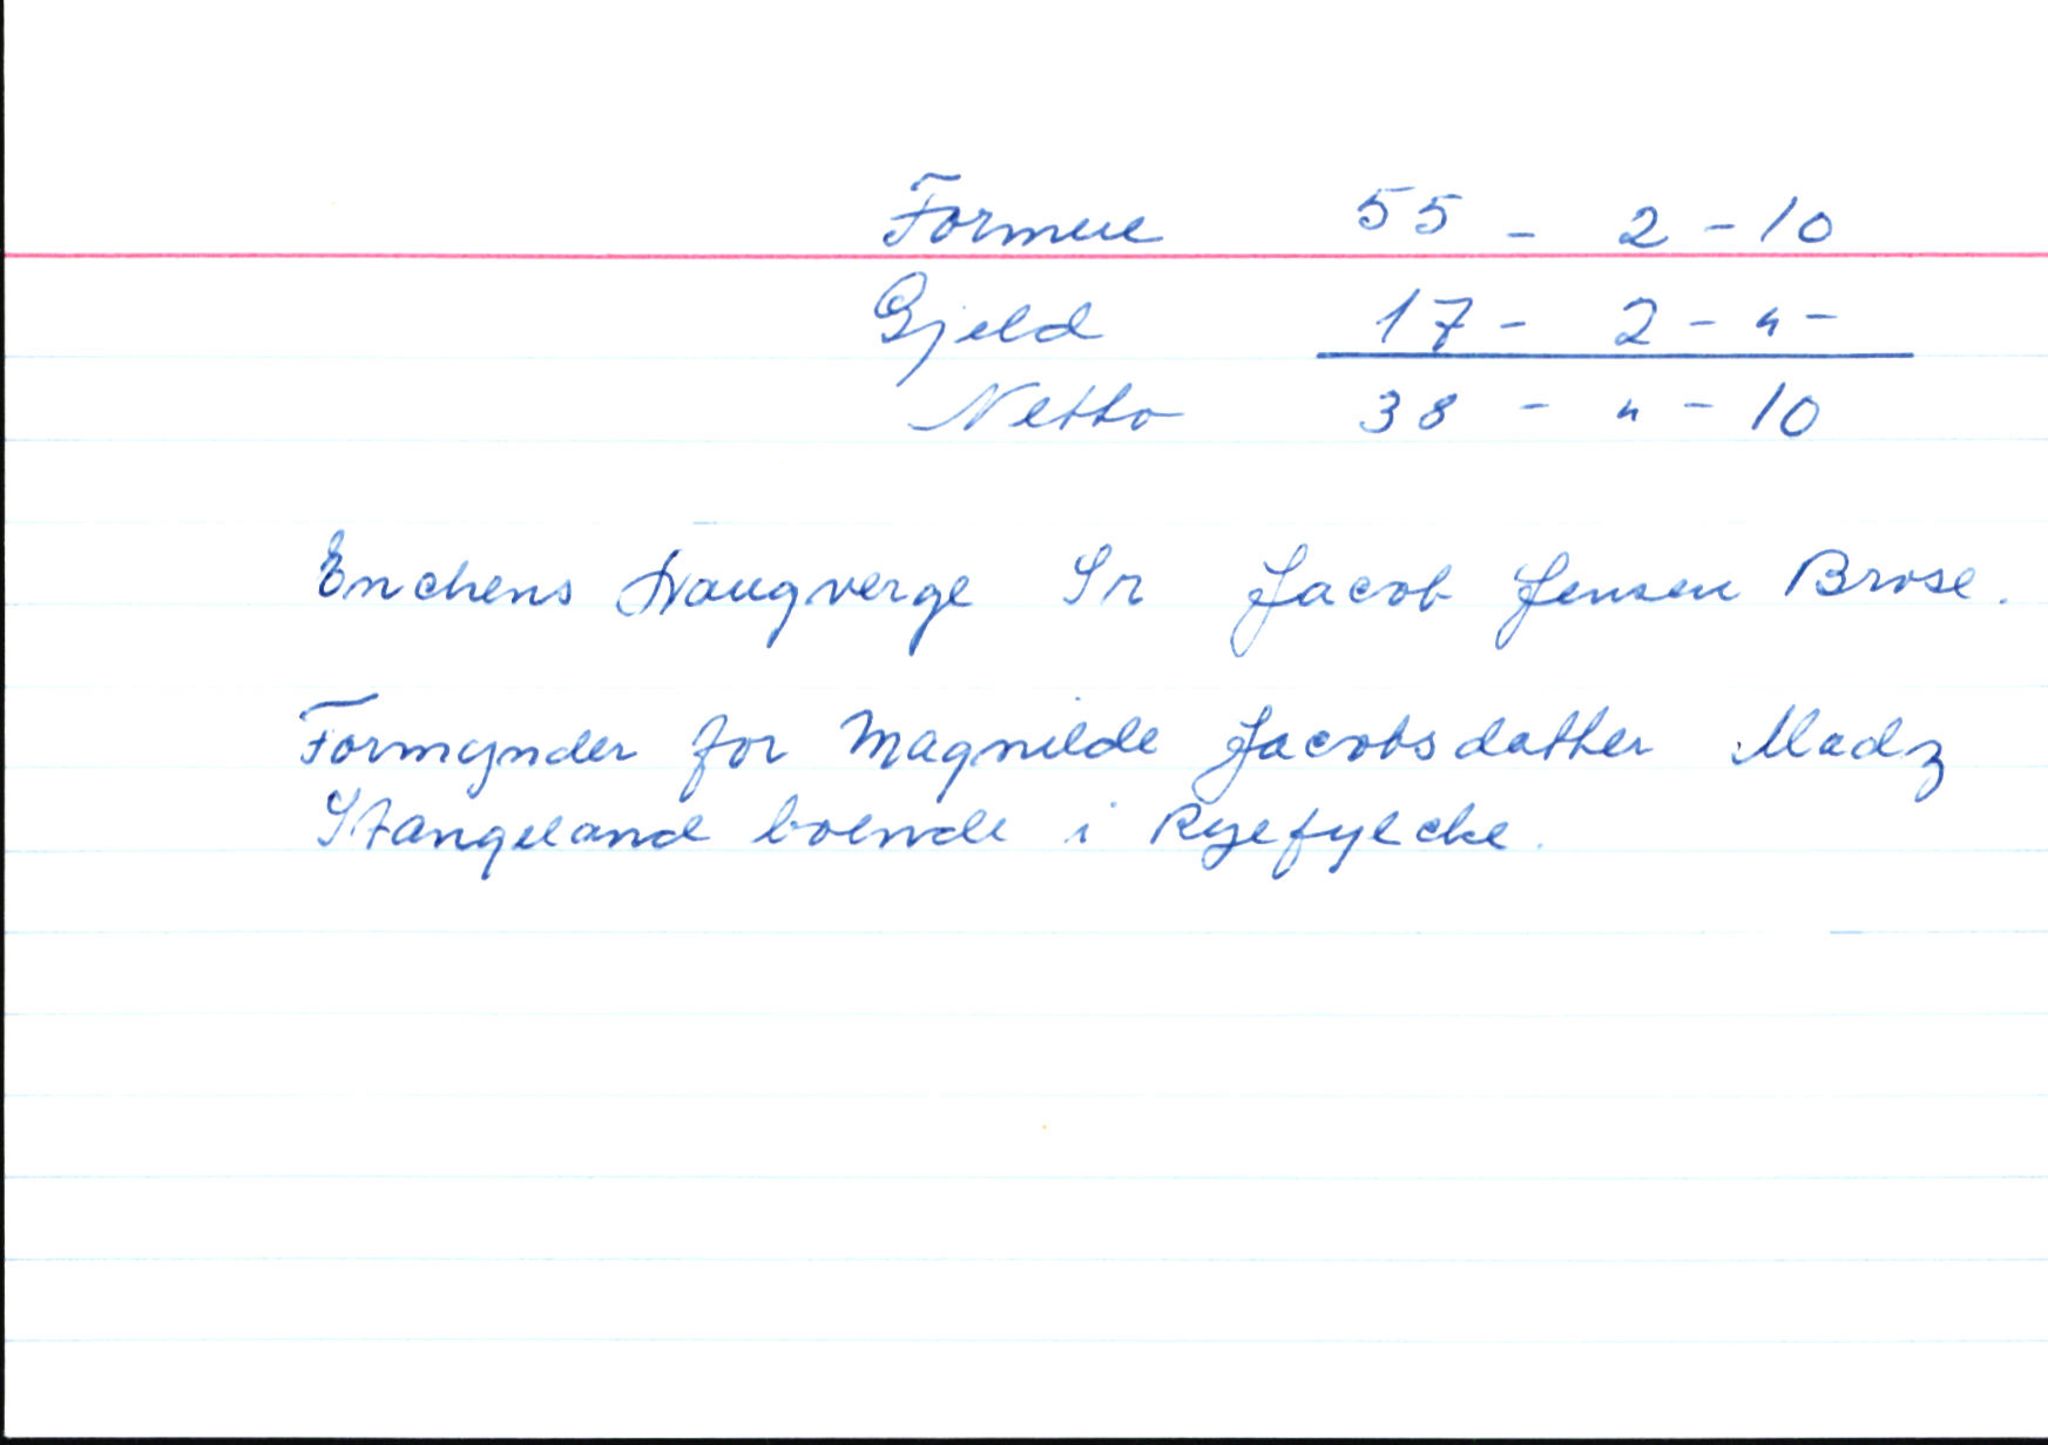 Formue 55 - 2 - 10
Gjeld 17 - 2 - " -
Netto 38 - " - 10
Enchens Laugverge Sr Jacob Jensen Brose.
Formynder for Magnilde Jacobsdatter Madz
Stangeland boende i Ryefylcke.